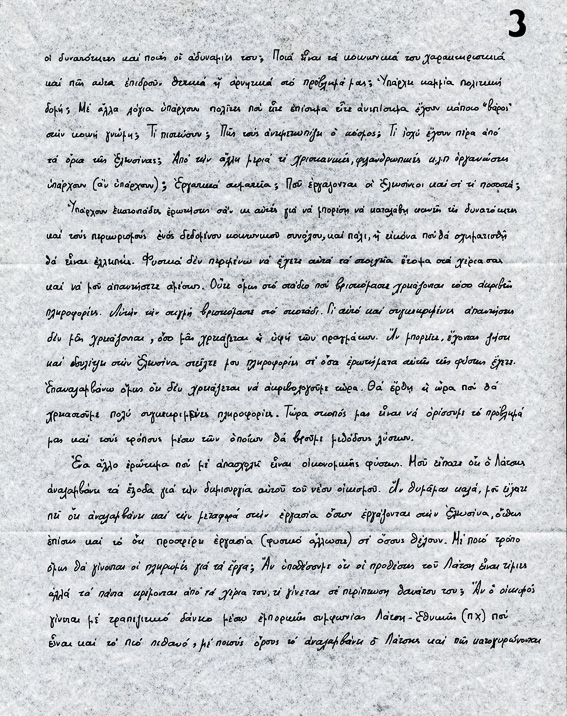 3
οἱ δυνατότητες καί ποιές οἱ ἀδυναμίες του; Ποιά εἶναι τά κοινωνικά του χαρακτηριστικά
καί πῶς αὐτά ἐπιδροῦν θετικά ἤ ἀρνητικά στό πρόβλημά μας; Ὑπάρχει καμμία πολιτική
δομή; Μέ ἄλλα λόγια ὑπάρχουν πολίτες πού εἴτε ἐπίσημα εἴτε ἀνεπίσημα ἔχουν κάποιο "βάρος"
στήν κοινή γνώμη; Τί πιστεύουν; Πῶς τούς ἀντιμετωπίζει ὁ κόσμος; Τί ἰσχύ ἔχουν πέρα ἀπό
τά ὅρια τῆς Ἐλευσίνας; Ἀπό τήν ἄλλη μεριά τί χριστιανικές, φιλανθρωπικές κ.λ.π ὀργανώσεις
ὑπάρχουν (ἄν ὑπάρχουν); Ἐργατικά σωματεῖα; Ποῦ ἐργάζονται οἱ Ἐλευσίνιοι καί σέ τί ποσοστά;
Ὑπάρχουν ἑκατοντάδες ἐρωτήσεις σάν κι αὐτές γιά νά μπορέση νά καταλάβη κανείς τίς δυνατότητες
καί τούς περιορισμούς ἑνός δεδομένου κοινωνικοῦ συνόλου, καί πάλι, ἡ εἰκόνα πού θά σχηματισθῆ
θά εἶναι ἐλλιπής. Φυσικά δέν περιμένω νά ἔχετε αὐτά τά στοιχεῖα ἕτοιμα στά χέρια σας
καί νά μοῦ ἀπαντήσετε ἀμέσως. Οὔτε ὅμως στό στάδιο πού βρισκόμαστε χρειάζονται τόσο ἀκριβεῖς
πληροφορίες. Αὐτήν τήν στιγμή βρισκόμαστε στό σκοτάδι. Γι αὐτό καί συγκεκριμένες ἀπαντήσεις
δέν μᾶς χρειάζονται, ὅσο μᾶς χρειάζεται ἡ ὑφή τῶν πραγμάτων. Ἄν μπορεῖτε, ἔχοντας ζήσει
καί δουλέψει στήν Ἐλευσίνα στεῖλτε μου πληροφορίες σέ ὅσα ἐρωτήματα αὐτῆς τῆς φύσης ἔχετε.
Ἐπαναλαμβάνω ὅμως ὅτι δέν χρειάζεται νά ἀκριβολογοῦμε τώρα. Θά ἔρθη ἡ ὥρα πού θά
χρειαστοῦμε πολύ συγκεκριμένες πληροφορίες. Τώρα σκοπός μας εἶναι νά ὁρίσουμε τό πρόβλημά
μας καί τούς τρόπους μέσω τῶν ὁποίων θά βροῦμε μεθόδους λύσεων.
Ἕνα ἄλλο ἐρώτημα πού μέ ἀπασχολεῖ εἶναι οἰκονομικῆς φύσεως. Μοῦ εἴπατε ὅτι ὁ Λάτσης
ἀναλαμβάνει τά ἔξοδα γιά τήν δημιουργία αὐτοῦ τοῦ νέου οἰκισμοῦ. Ἄν θυμᾶμαι καλά, μοῦ εἴχατε
πεῖ ὅτι ἀναλαμβάνει καί τήν μεταφορά στήν ἐργασία ὅσων ἐργάζονται στήν Ἐλευσίνα, καθώς
ἐπίσης καί τό ὅτι προσφέρει ἐργασία (φυσικό ἄλλωστε) σέ ὅσους θέλουν. Μέ ποιό τρόπο
ὅμως θά γίνονται οἱ πληρωμές γιά τά ἔργα; Ἄν ὑποθέσουμε ὅτι οἱ προθέσεις τοῦ Λάτση εἶναι τίμιες
ἀλλά τά πάντα κρέμονται ἀπό τά χέρια του, τί γίνεται σέ περίπτωση θανάτου του; Ἄν ὁ οἰκισμός
γίνεται μέ τραπεζιτικό δάνειο μέσω ἐμπορικῆς συμφωνίας Λάτση-Ἐθνικῆς (πχ) πού
εἶναι καί τό πιό πιθανό, μέ ποιούς ὅρους τό ἀναλαμβάνει ὁ Λάτσης καί πῶς κατοχυρώνονται